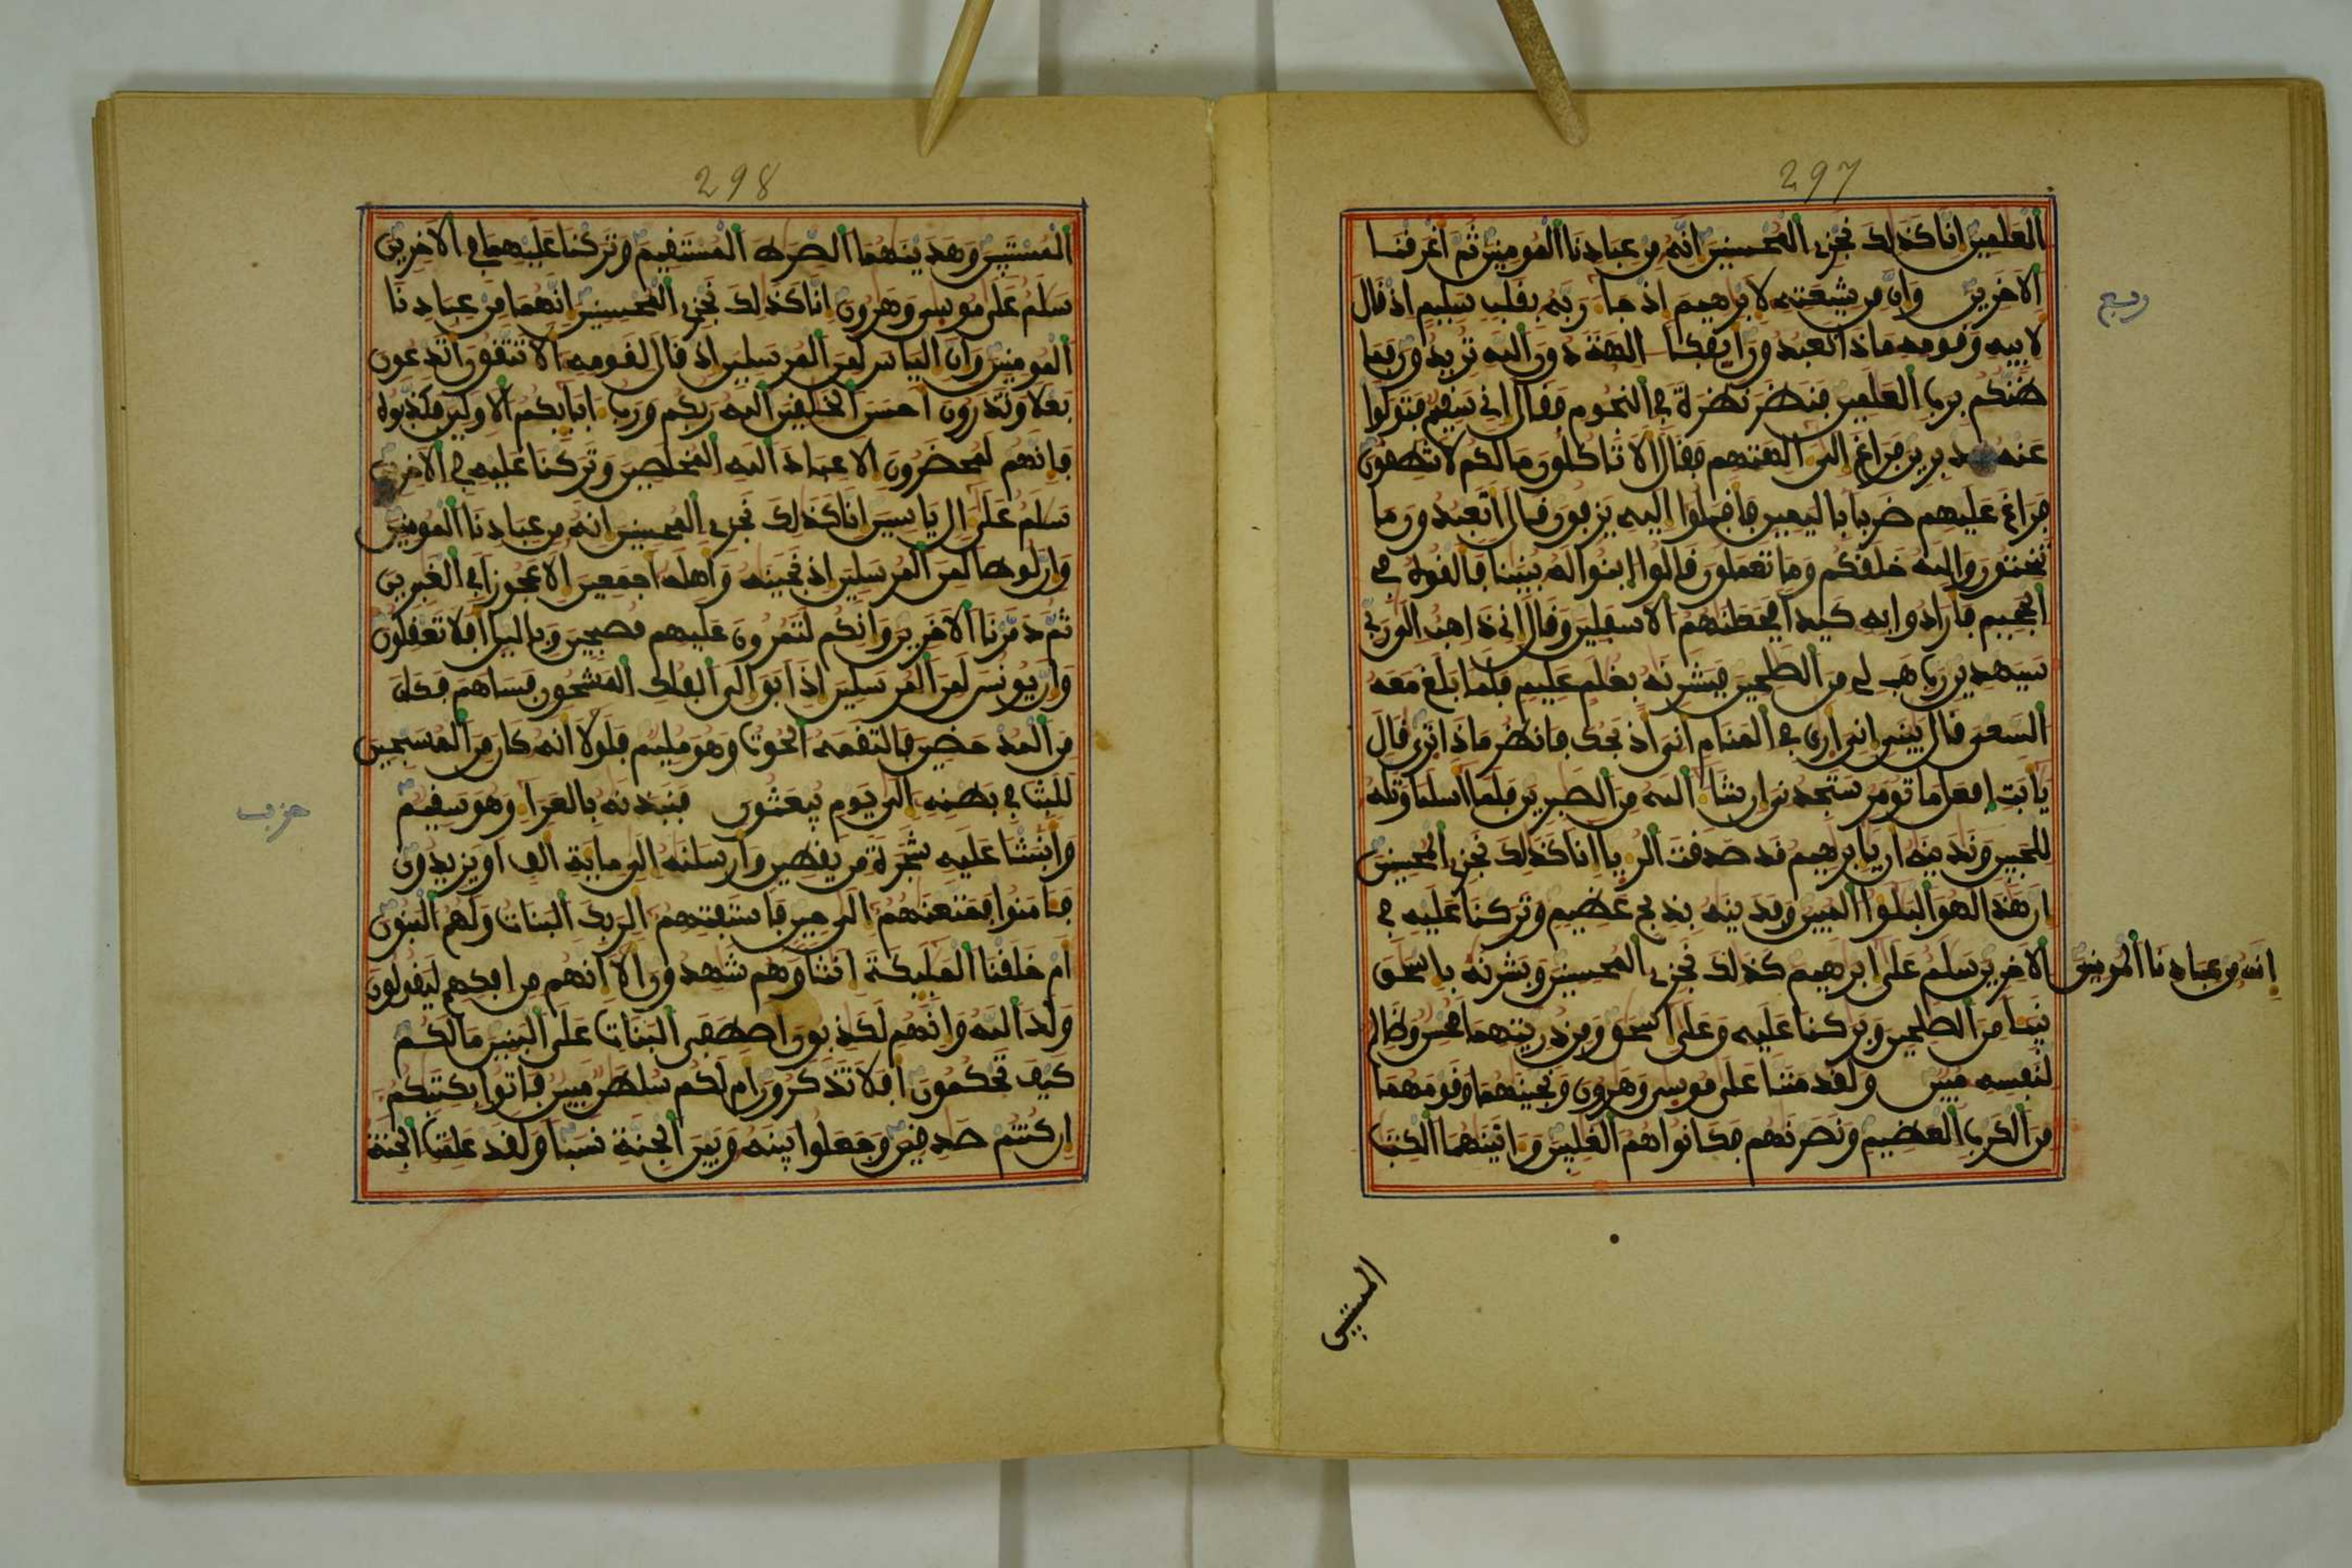 297
العلمين انا كذلك نجزي المحسنين انه من عبادنا المومنين ثم اغرقنا
الاخرين وان من شيعته لابرهيم اذ جا ربه بقلب سليم اذ قال
لابيه وقومه ماذا تعبدون ايفكا الهة دون الله تريدون فما
ظنكم برب العلمين فنظر نظرة في النجوم فقال اني سقيم فتولوا
عنه مدبرين فراغ الى الهتهم فقال الا تاكلون مالكم لا تنطقون
فراغ عليهم ضربا باليمين فاقبلوا اليه يزفون قال اتعبدون ما
تنحتون والله خلقكم وما تعملون قالوا ابنوا له بنينا فالقوه في
الجحيم فارادوا به كيدا فجعلنهم الاسفلين وقال اني ذاهب الى ربي
سيهدين رب هب لي من الصلحين فبشرنه بغلم عليم فلما بلغ معه
السعي قال يبني اني ارى في المنام اني اذبحك فانظر ماذا ترى قال
يابت افعل ما تومر ستجدني ان شا الله من الصبرين فلما اسلما وتله
للجبين وندينه ان يابرهيم قد صدقت الريا انا كذلك نجزي المحسنين
ان هذا لهو البلوا المبين وفدينه بذبح عظيم وتركنا عليه في
الاخرين سلم على ابرهيم كذلك نجزي المحسنين وبشرنه باسحق
نبيا من الصلحين وبركنا عليه وعلى اسحق ومن ذريتهما محسن وظالم
لنفسه مبين ولقد مننا على موسى وهرون ونجينهما وقومهما
من الكرب العظيم ونصرنهم فكانوا هم الغلبين واتينهما الكتب
ربع
انه من عبادنا المومنين
المستبين
298
المستبين وهدينهما الصرط المستقيم وتركنا عليهما في الاخرين
سلم على موسى وهرون انا كذلك نجزي المحسنين انهما من عبادنا
المومنين وان الياس لمن المرسلين اذ قال لقومه الا تتقون اتدعون
بعلا وتذرون احسن الخلقين الله ربكم ورب ابايكم الاولين فكذبوه
فانهم لمحضرون الا عباد الله المخلصين وتركنا عليه في الاخرين
سلم على ال ياسين انا كذلك نجزي المحسنين انه من عبادنا المومنين
وان لوطا لمن المرسلين اذ نجينه واهله اجمعين الا عجوزا في الغبرين
ثم دمرنا الاخرين وانكم لتمرون عليهم مصبحين وباليل افلا تعقلون
وان يونس لمن المرسلين اذ ابق الى الفلك المشحون فساهم فكان
من المدحضين فالتقمه الحوت وهو مليم فلولا انه كان من المسبحين
للبث في بطنه الى يوم يبعثون فنبذنه بالعرا وهو سقيم
وانبتنا عليه شجرة من يقطين وارسلنه الى ماية الف او يزيدون
فامنوا فمتعنهم الى حين فاستفتهم الربك البنات ولهم البنون
ام خلقنا المليكة انثا وهم شهدون الا انهم من افكهم ليقولون
ولد الله وانهم لكذبون اصطفى البنات على البنين مالكم
كيف تحكمون افلا تذكرون ام لكم سلطن مبين فاتوا بكتبكم
ان كنتم صدقين وجعلوا بينه وبين الجنة نسبا ولقد علمت الجنة
حزب